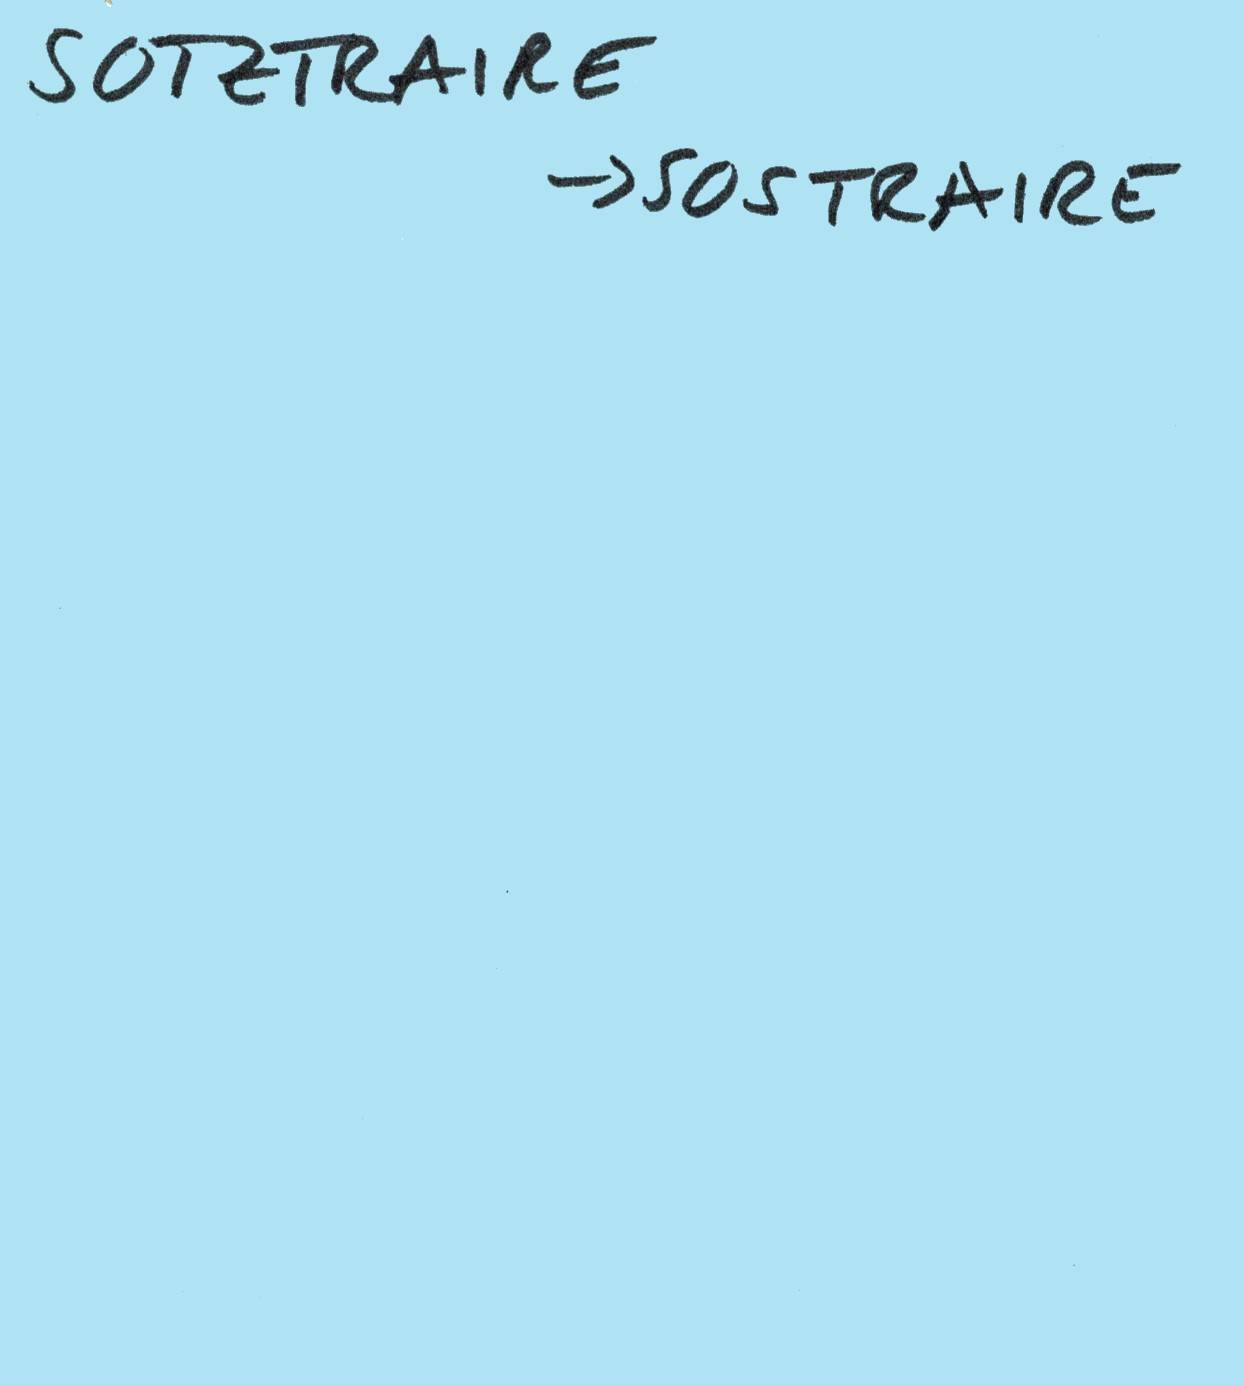 SOTZTRAIRE
→SOSTRAIRE